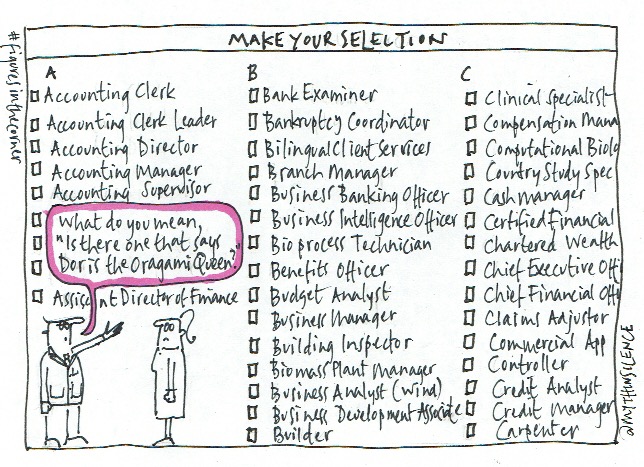 MAKE YOUR SELECTION
#figuresinthecorner
A
Accounting Clerk
Accounting Clerk Leader
Accounting Director
Accounting Manager
Accounting Supervisor
What do you mean,
"Is there one that says
Doris the Oragami Queen?"
Assistant Director of Finance
B
Bank Examiner
Bankruptcy Coordinator
Bilingual Client Services
Branch Manager
Business Banking Officer
Business Intelligence Officer
Bio process Technician
Benefits Officer
Budget Analyst
Business Manager
Building Inspector
Biomass Plant Manager
Business Analyst (wind)
Business Development Associate
Builder
C
Clinical Specialist
Compensation Mana
Computational Biolo
Country Study Spec
Cash manager
Certified Financial
Chartered Wealth
Chief Executive Offi
Chief Financial Offi
Claims Adjustor
Commercial App
Controller
Credit Analyst
Credit Manager
Carpenter
@MYTHINSILENCE